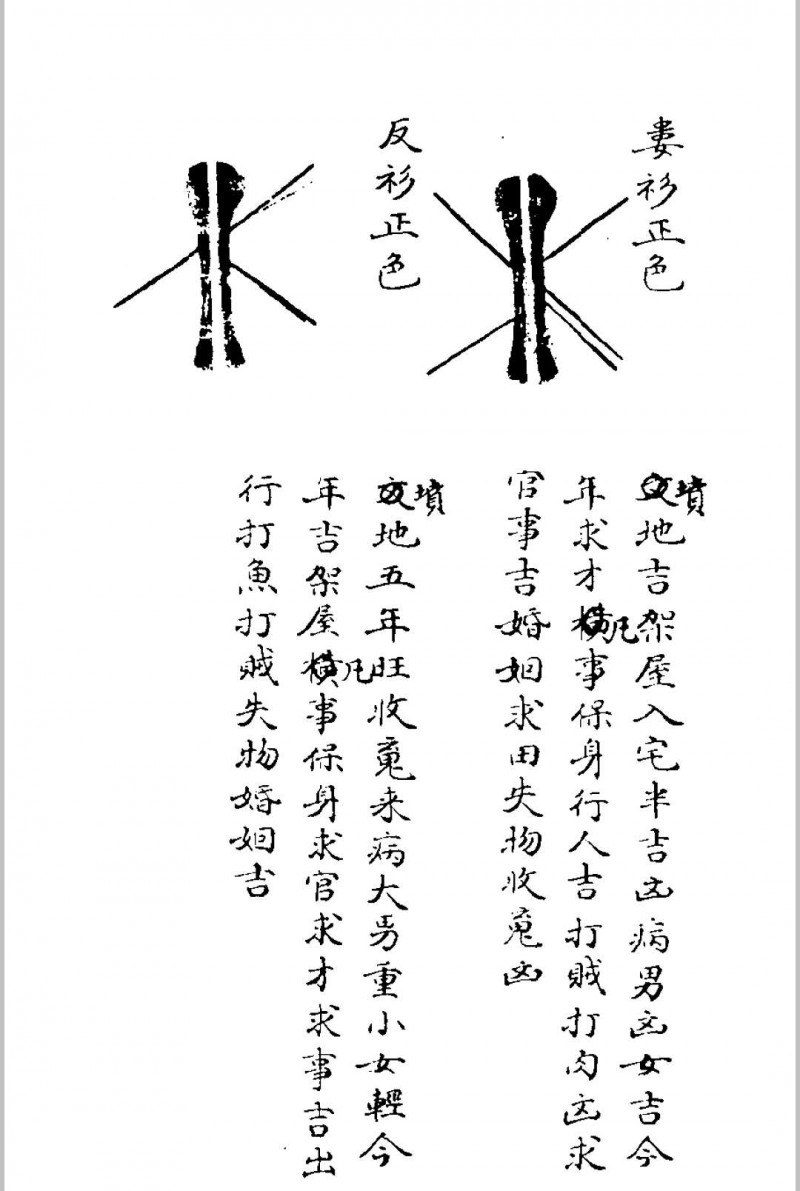 婁衫正色
墳地吉架屋入宅半吉凶病男凶女吉今
年求才橫凡事保身行人吉打賊打肉凶求
官事吉婚姻求田失物收䰟凶
反衫正色
墳地五年旺收䰟来病大男重小女輕今
年吉架屋橫凡事保身求官求才求事吉出
行打魚打賊失物婚姻吉